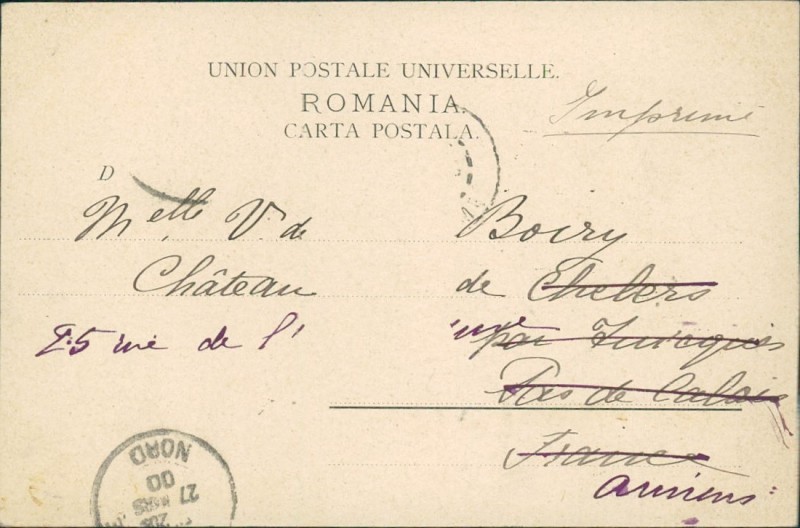 UNION POSTALE UNIVERSELLE.
ROMANIA.
CARTA POSTALA.
Imprimé
D
Melle V. de Boiry
Château de Chelers
25 rue de l'
par Tincques
Pas de Calais
France
Amiens
NORD
00
27 MARS